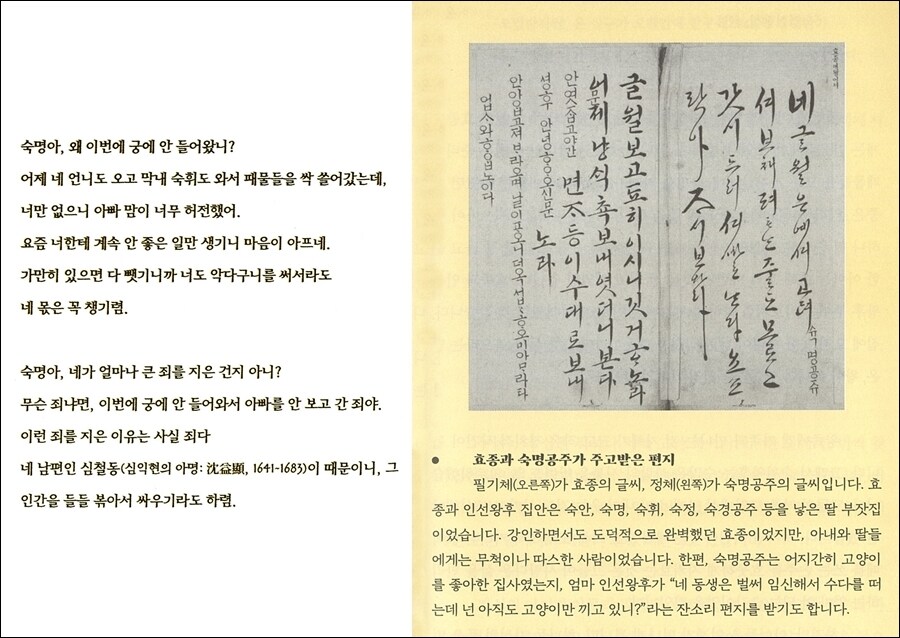 숙명아, 왜 이번에 궁에 안 들어왔니?
어제 네 언니도 오고 막내 숙휘도 와서 패물들을 싹 쓸어갔는데,
너만 없으니 아빠 맘이 너무 허전했어.
요즘 너한테 계속 안 좋은 일만 생기니 마음이 아프네.
가만히 있으면 다 뺏기니까 너도 악다구니를 써서라도
네 몫은 꼭 챙기렴.
숙명아, 네가 얼마나 큰 죄를 지은 건지 아니?
무슨 죄냐면, 이번에 궁에 안 들어와서 아빠를 안 보고 간 죄야.
이런 죄를 지은 이유는 사실 죄다
네 남편인 심철동(심익현의 아명: 沈益顯, 1641-1683)이 때문이니, 그
인간을 들들 볶아서 싸우기라도 하렴.
네 글월은
글월 보고 됴히 이시니 깃거ᄒᆞ노라
어제 냥 촉 보내엿더니 본다
면ᄌᆞ등 이 수대로 보내
노라
업ᄉᆞ와 ᄒᆞᄋᆞᆸ노이다
● 효종과 숙명공주가 주고받은 편지
필기체(오른쪽)가 효종의 글씨, 정체(왼쪽)가 숙명공주의 글씨입니다. 효
종과 인선왕후 집안은 숙안, 숙명, 숙휘, 숙정, 숙경공주 등을 낳은 딸 부잣집
이었습니다. 강인하면서도 도덕적으로 완벽했던 효종이었지만, 아내와 딸들
에게는 무척이나 따스한 사람이었습니다. 한편, 숙명공주는 어지간히 고양이
를 좋아한 집사였는지, 엄마 인선왕후가 “네 동생은 벌써 임신해서 수다를 떠
는데 넌 아직도 고양이만 끼고 있니?”라는 잔소리 편지를 받기도 합니다.